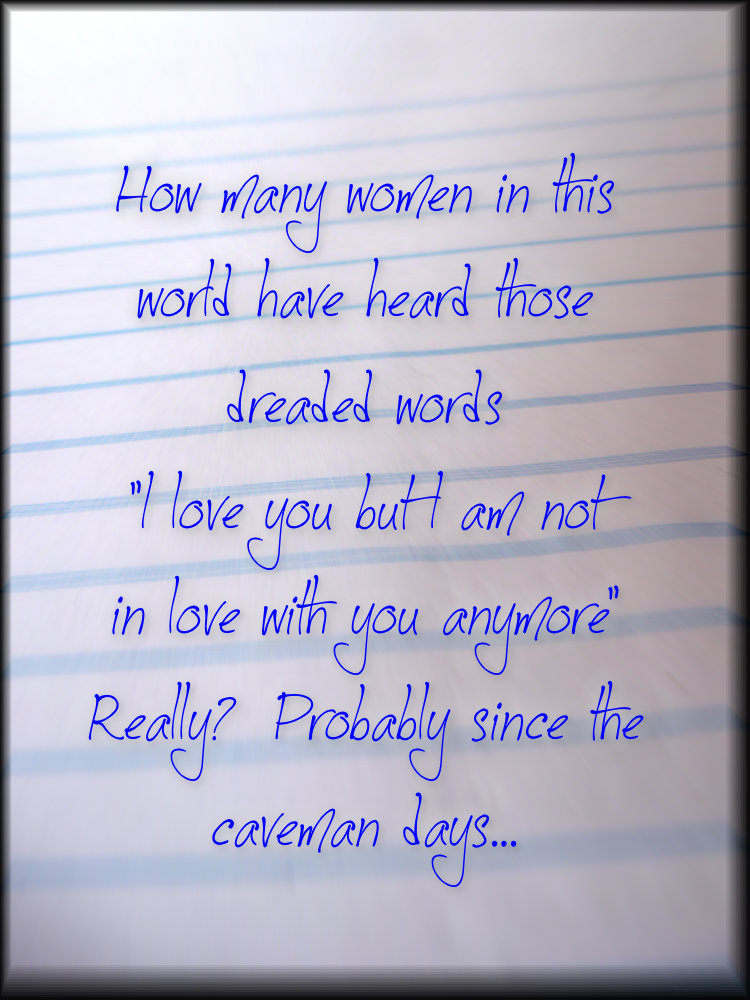 How many women in this
world have heard those
dreaded words
"I love you but I am not
in love with you anymore"
Really?  Probably since the
caveman days...